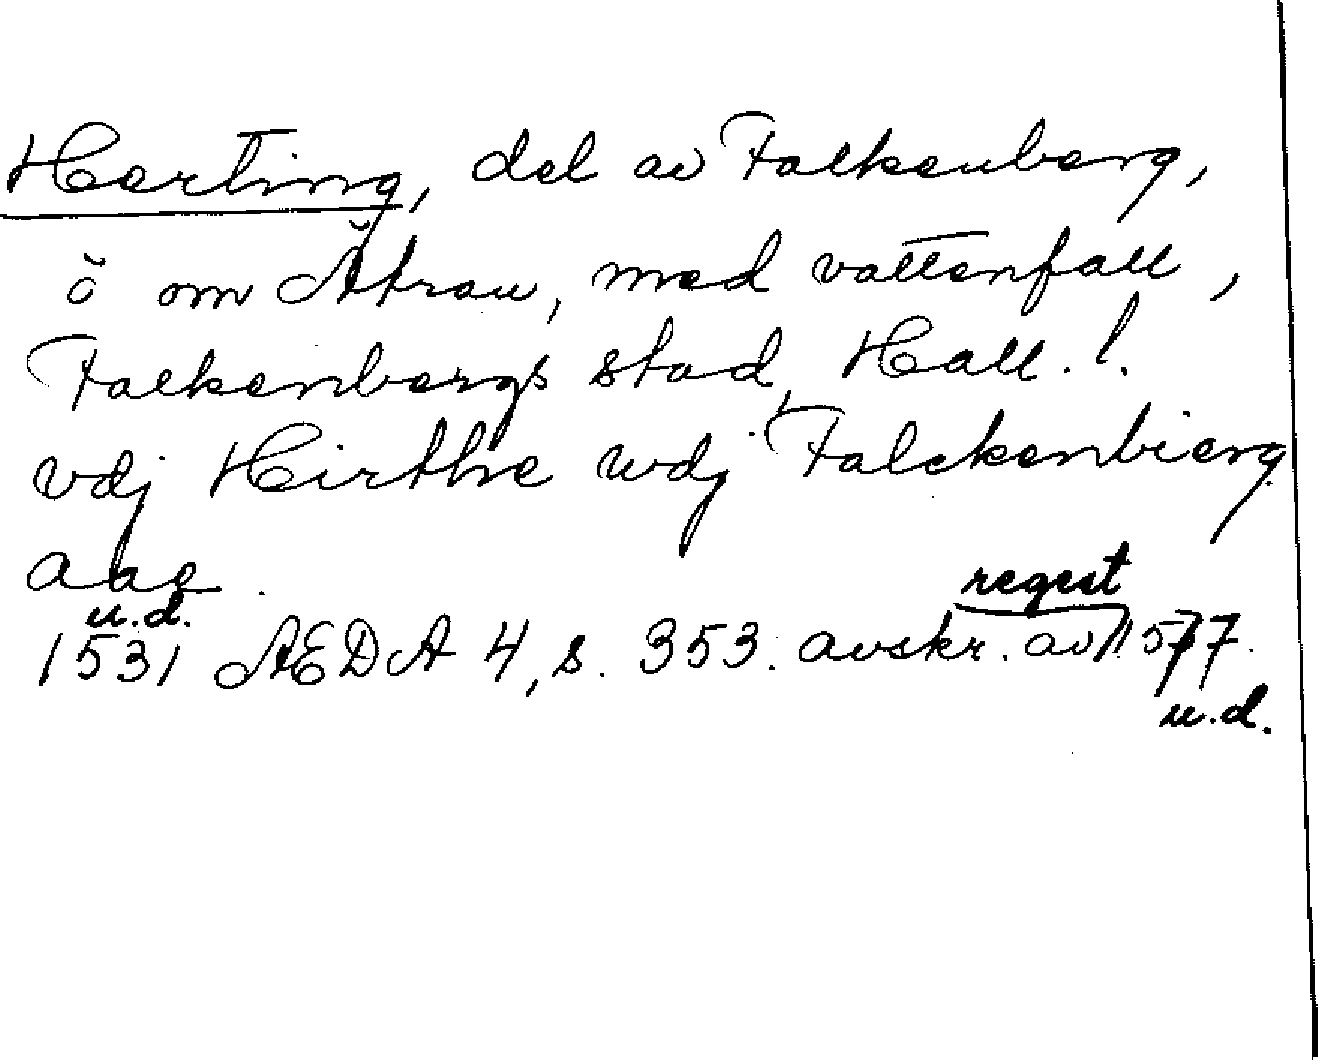 Herting, del av Falkenberg,
ö om Ätran, med vattenfall,
Falkenbergs stad, Hall. l.
vdj Hirthe wdj Falckenbierg
aae.
regest
u.d.
1531 AEDA 4, s. 353. avskr. av 1577.
u.d.